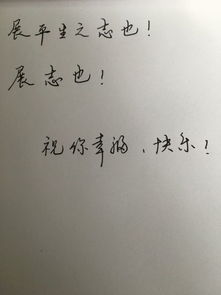 展平生之志也!
展志也!
祝你幸福、快乐!